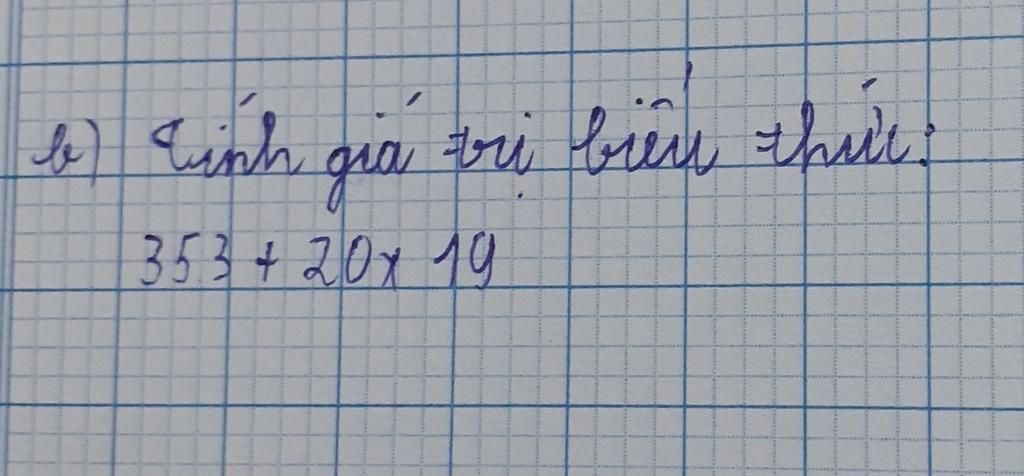 b) Tính giá trị biểu thức:
353 + 20 x 19